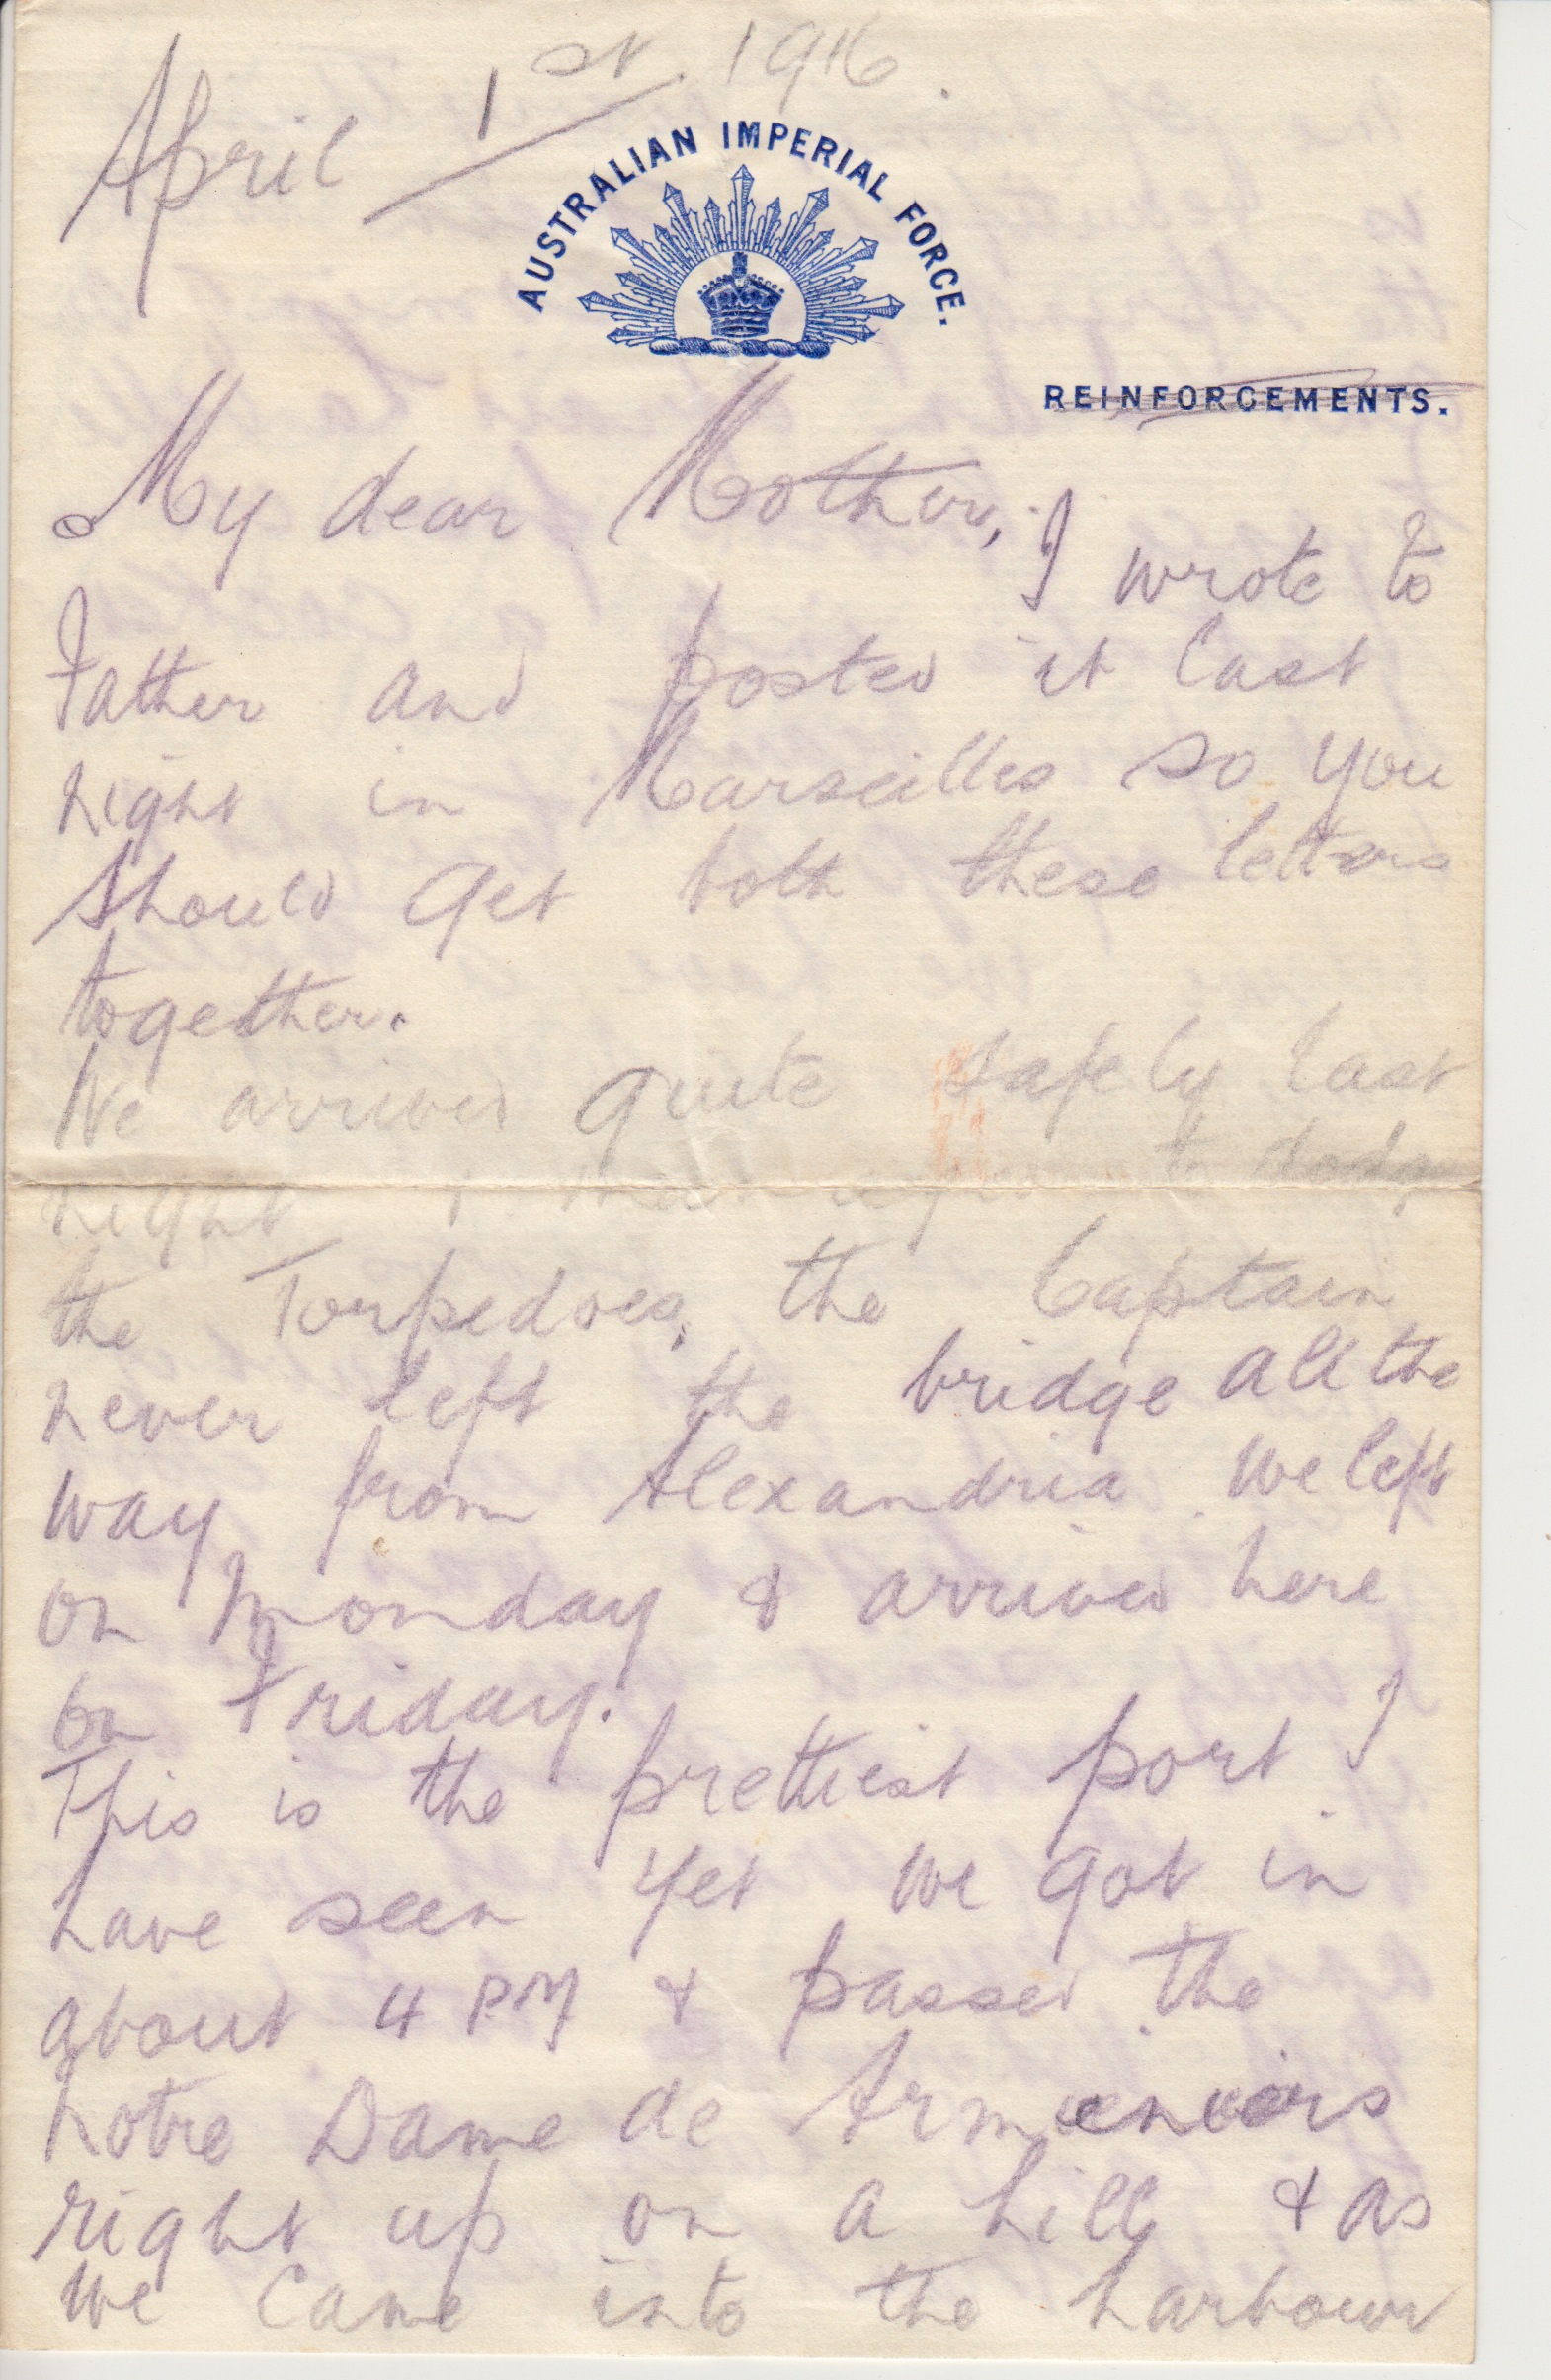 April 1st 1916.
AUSTRALIAN IMPERIAL FORCE.
REINFORCEMENTS.
My dear Mother,
I wrote to
Father and posted it last
night in Marseilles so you
should get both these letters
together.
We arrived quite safely last
night & managed to dodge
the Torpedoes, the Captain
never left the bridge all the
way from Alexandria. We left
on Monday & arrived here
on Friday.
This is the prettiest port I
have seen yet we got in
about 4 PM & passed the
Notre Dame de
right up on a hill & as
we came into the harbour